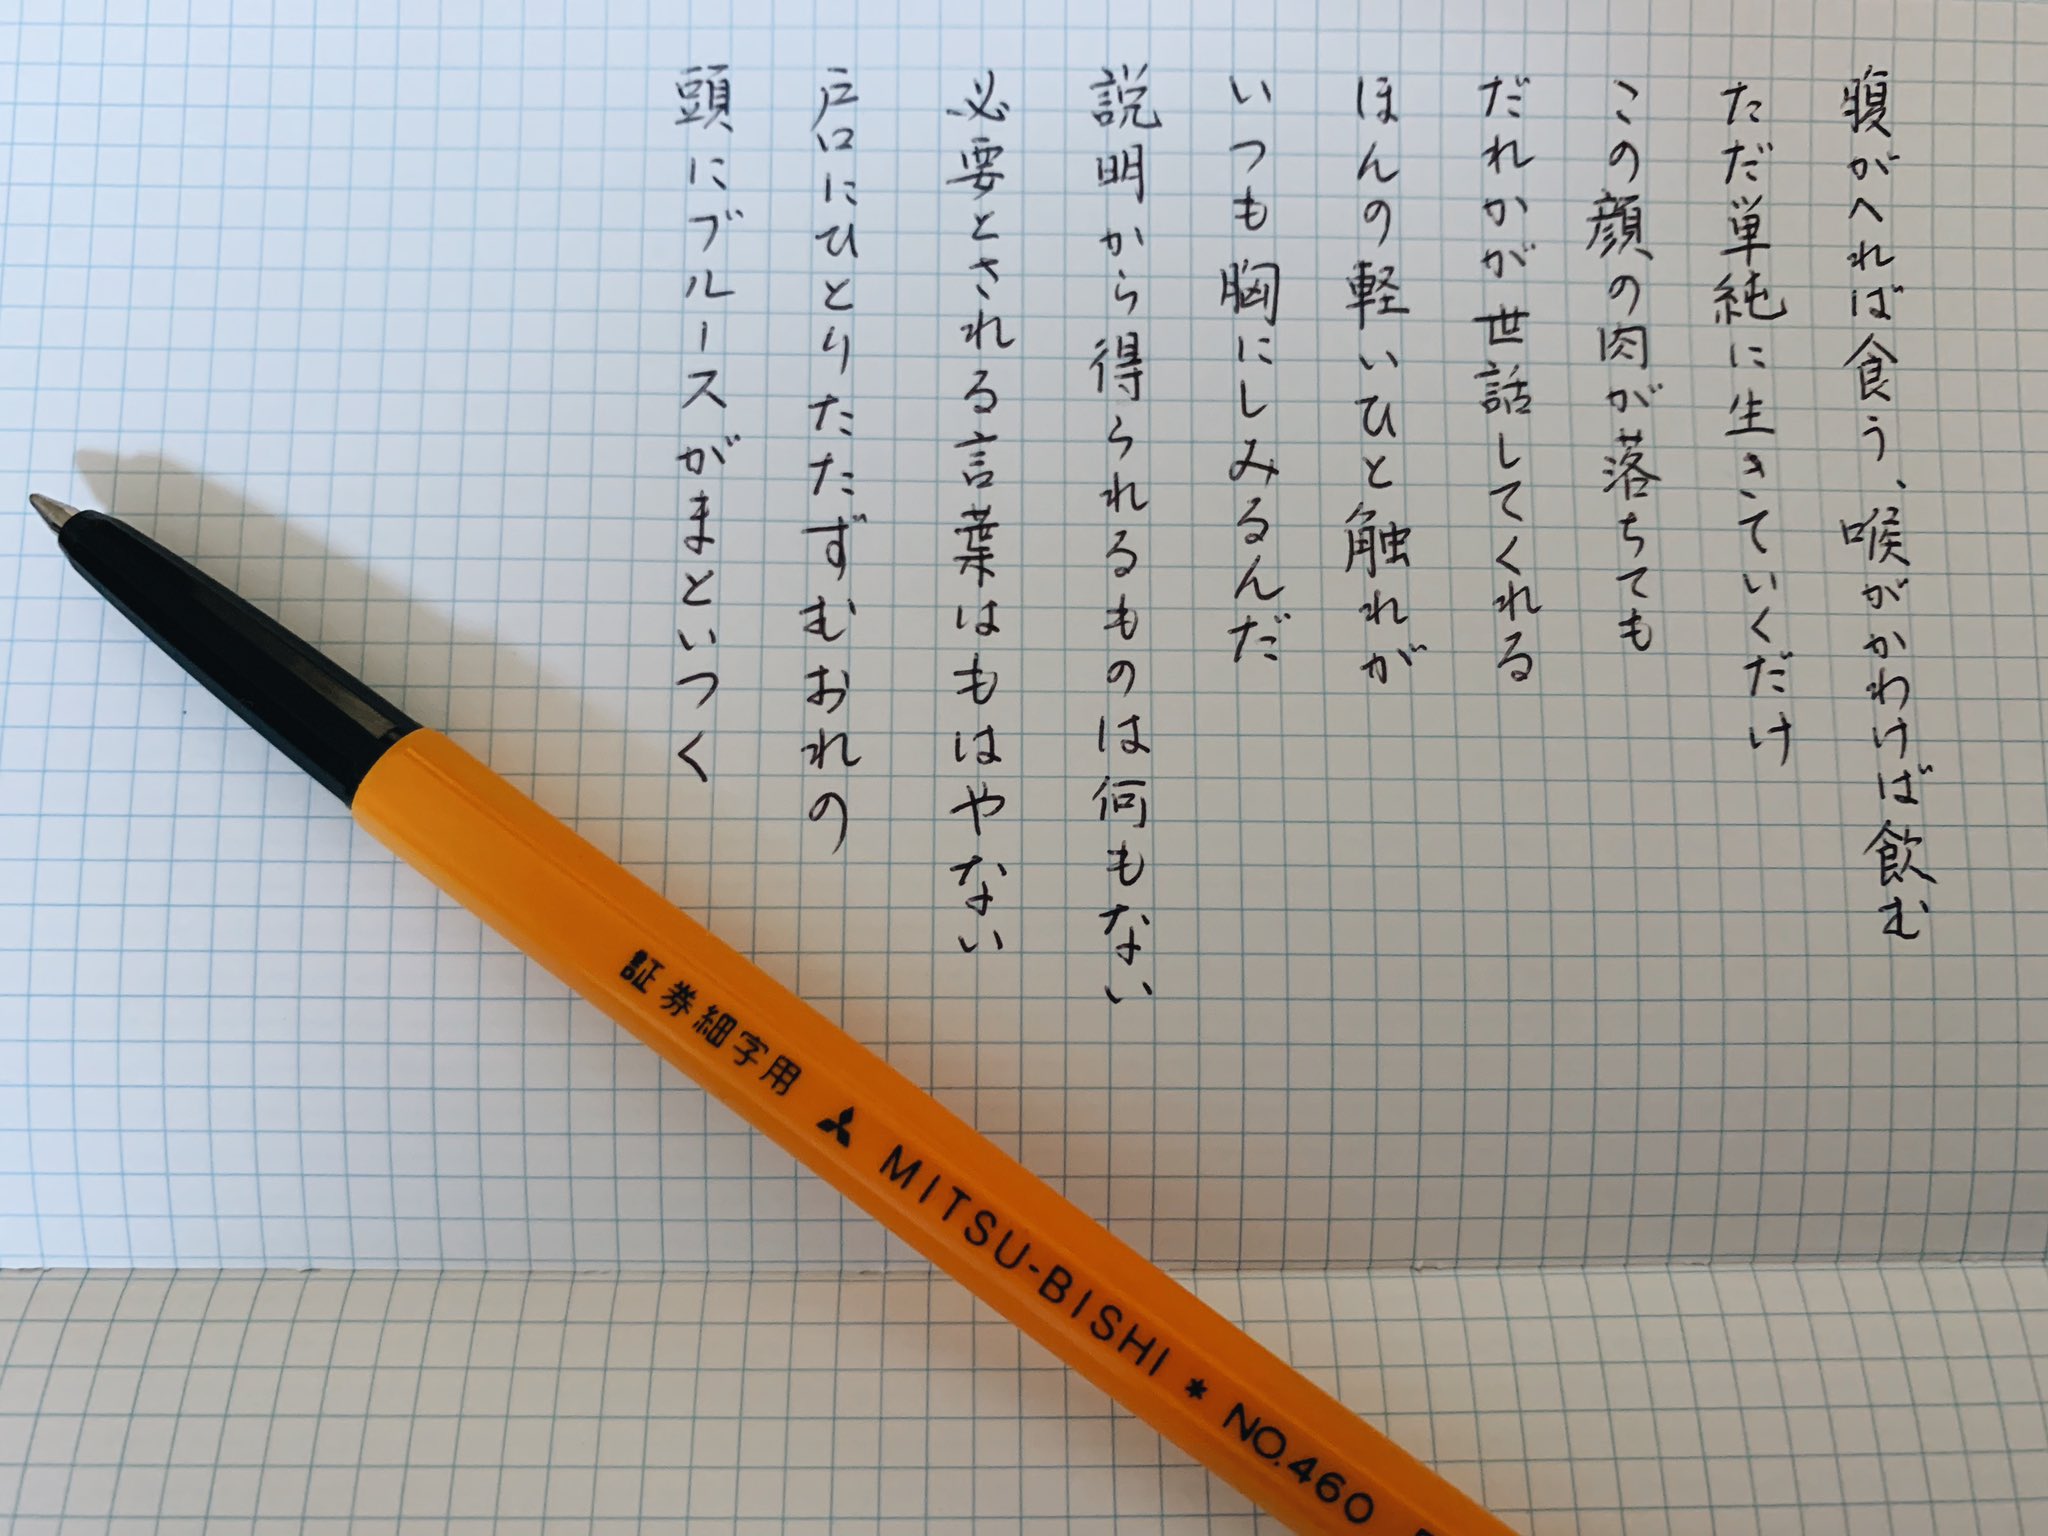 腹がへれば食う、喉がかわけば飲む
ただ単純に生きていくだけ
この顔の肉が落ちても
だれかが世話してくれる
ほんの軽いひと触れが
いつも胸にしみるんだ
説明から得られるものは何もない
必要とされる言葉はもはやない
戸口にひとりたたずむおれの
頭にブルースがまといつく
証券細字用 MITSU-BISHI * NO.460